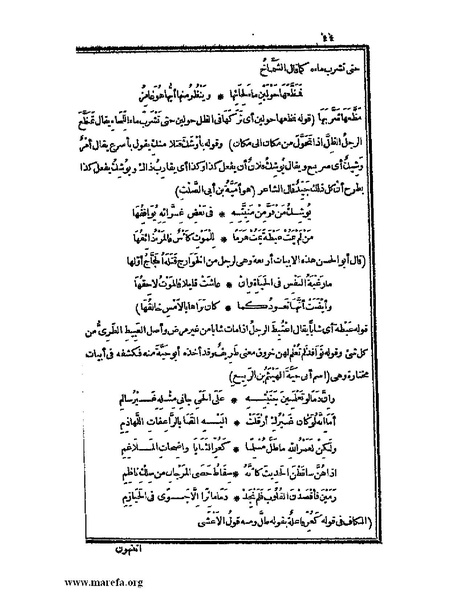 ٤٤
حتى تشرب ماءه كما قال الشماخ
فمظعها حولين ماء لحائها * وينظر منها أيها هو غامز
مظعها تشربها (قوله مظعها حولين أى تركها فى الظل حولين حتى تشرب ماء اللحاء يقال تمظع
الرجل الظل اذا تحول من مكان الى مكان) وقوله بأوشك قتلا منك يقول بأسرع يقال أمر
وشيك أى سريع ويقال يوشك فلان أن يفعل كذا وكذا أى يقارب ذلك ويوشك يفعل كذا
بطرح أن كل ذلك جيد قال الشاعر (هو أمية بن أبى الصلت)
يوشك من فر من منيته * فى بعض غراته يوافقها
من لم يمت عبطة يمت هرما * للموت كأس فالمرء ذائقها
(قال أبو الحسن هذه الابيات أربعة وهى لرجل من الخوارج قتله الحجاج أولها
ما رغبة النفس فى الحياة وان * عاشت قليلا فالموت لاحقها
وأيقنت أنها تعود كما * كان براها بالامس خالقها)
قوله عبطة أى شابا يقال اعتبط الرجل اذا مات شابا من غير مرض وأصل العبيط الطرى من
كل شئ وقوله نوافذ لم تعلم لهن خروق معنى طريف وقد أخذه أبو حية منه فكشفه فى أبيات
مختارة وهى (اسم أبى حية الهيثم بن الربيع)
وان دما لو تعلمين جنيته * على الحى جانى مثله غير سالم
أما انه لو كان غيرك أرقلت * اليه القنا بالراعفات اللهاذم
ولكن لعمر الله ما طل مسلما * كغر الثنايا واضحات الملاغم
اذا هن ساقطن الحديث كأنه * سقاط حصى المرجان من سلك ناظم
رمين فأقصدن القلوب فلم نجد * دما مائرا الا جوى فى الحيازم
(الكاف فى قوله كغر فاعلة بقوله طل ومنه قول الأعشى
أتنتهون
www.marefa.org